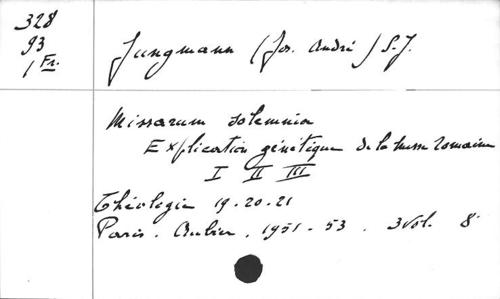 328
93
1 Fr.
Jungmann (Jos. André) S.J.
Missarum solemnia
Explication génétique de la messe romaine
I II III
Théologie 19-20-21
Paris. Aubier. 1951-53. 3 vol. 8°